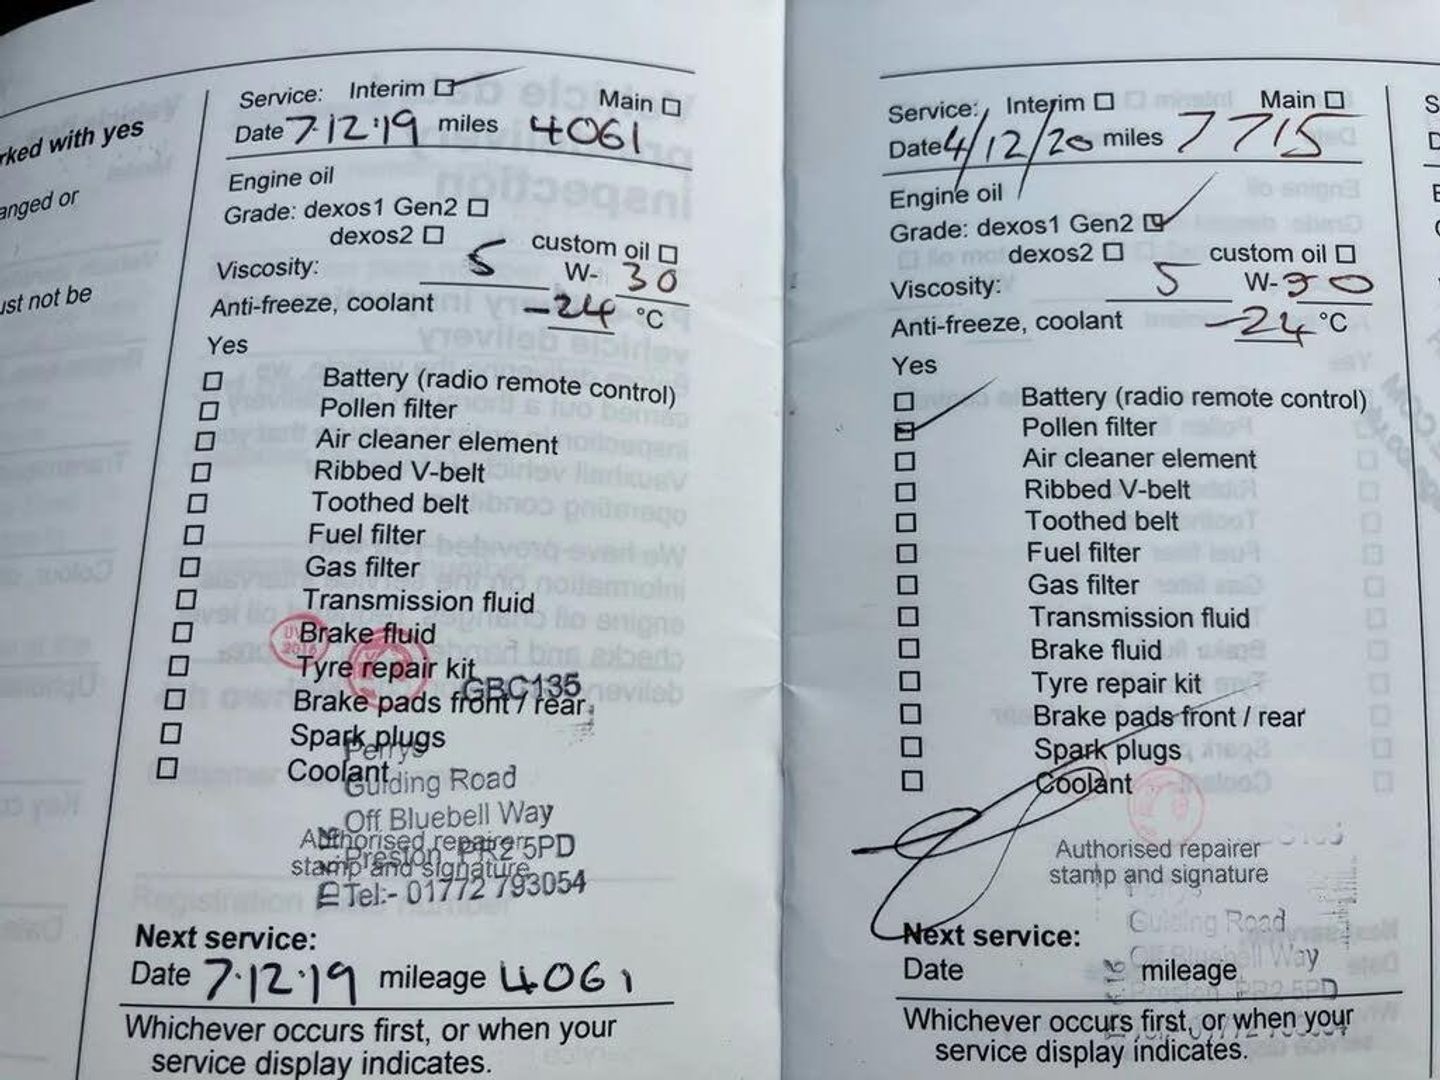 rked with yes
anged or
ust not be
Service: Interim Main
Date 7·12·19 miles 4061
Engine oil
Grade: dexos1 Gen2
dexos2 custom oil
Viscosity: 5 W- 30
Anti-freeze, coolant -24 °C
Yes
Battery (radio remote control)
Pollen filter
Air cleaner element
Ribbed V-belt
Toothed belt
Fuel filter
Gas filter
Transmission fluid
Brake fluid
Tyre repair kit
GBC135
Brake pads front / rear
Spark plugs
Perrys
Coolant
Guiding Road
Off Bluebell Way
Authorised repairer
Preston PR2 5PD
stamp and signature
Tel:- 01772 793054
Next service:
Date 7·12·19 mileage 4061
Whichever occurs first, or when your
service display indicates.
Service: Interim Main
Date 4/12/20 miles 7715
Engine oil
Grade: dexos1 Gen2
dexos2 custom oil
Viscosity: 5 W-30
Anti-freeze, coolant -24 °C
Yes
Battery (radio remote control)
Pollen filter
Air cleaner element
Ribbed V-belt
Toothed belt
Fuel filter
Gas filter
Transmission fluid
Brake fluid
Tyre repair kit
Brake pads front / rear
Spark plugs
Coolant
Authorised repairer
stamp and signature
Guiding Road
Next service:
Off Bluebell Way
Date mileage
Preston PR2 5PD
Whichever occurs first, or when your
service display indicates.